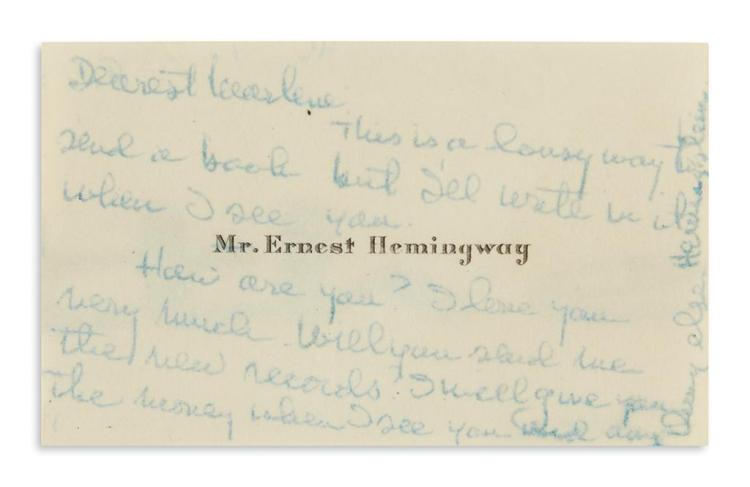 Dearest Marlene
This is a lousy way to
send a book but I'll write in it
when I see you.
Mr. Ernest Hemingway
How are you? I love you
very much Will you send me
the new records? I will give you
the money when I see you and any
thing else